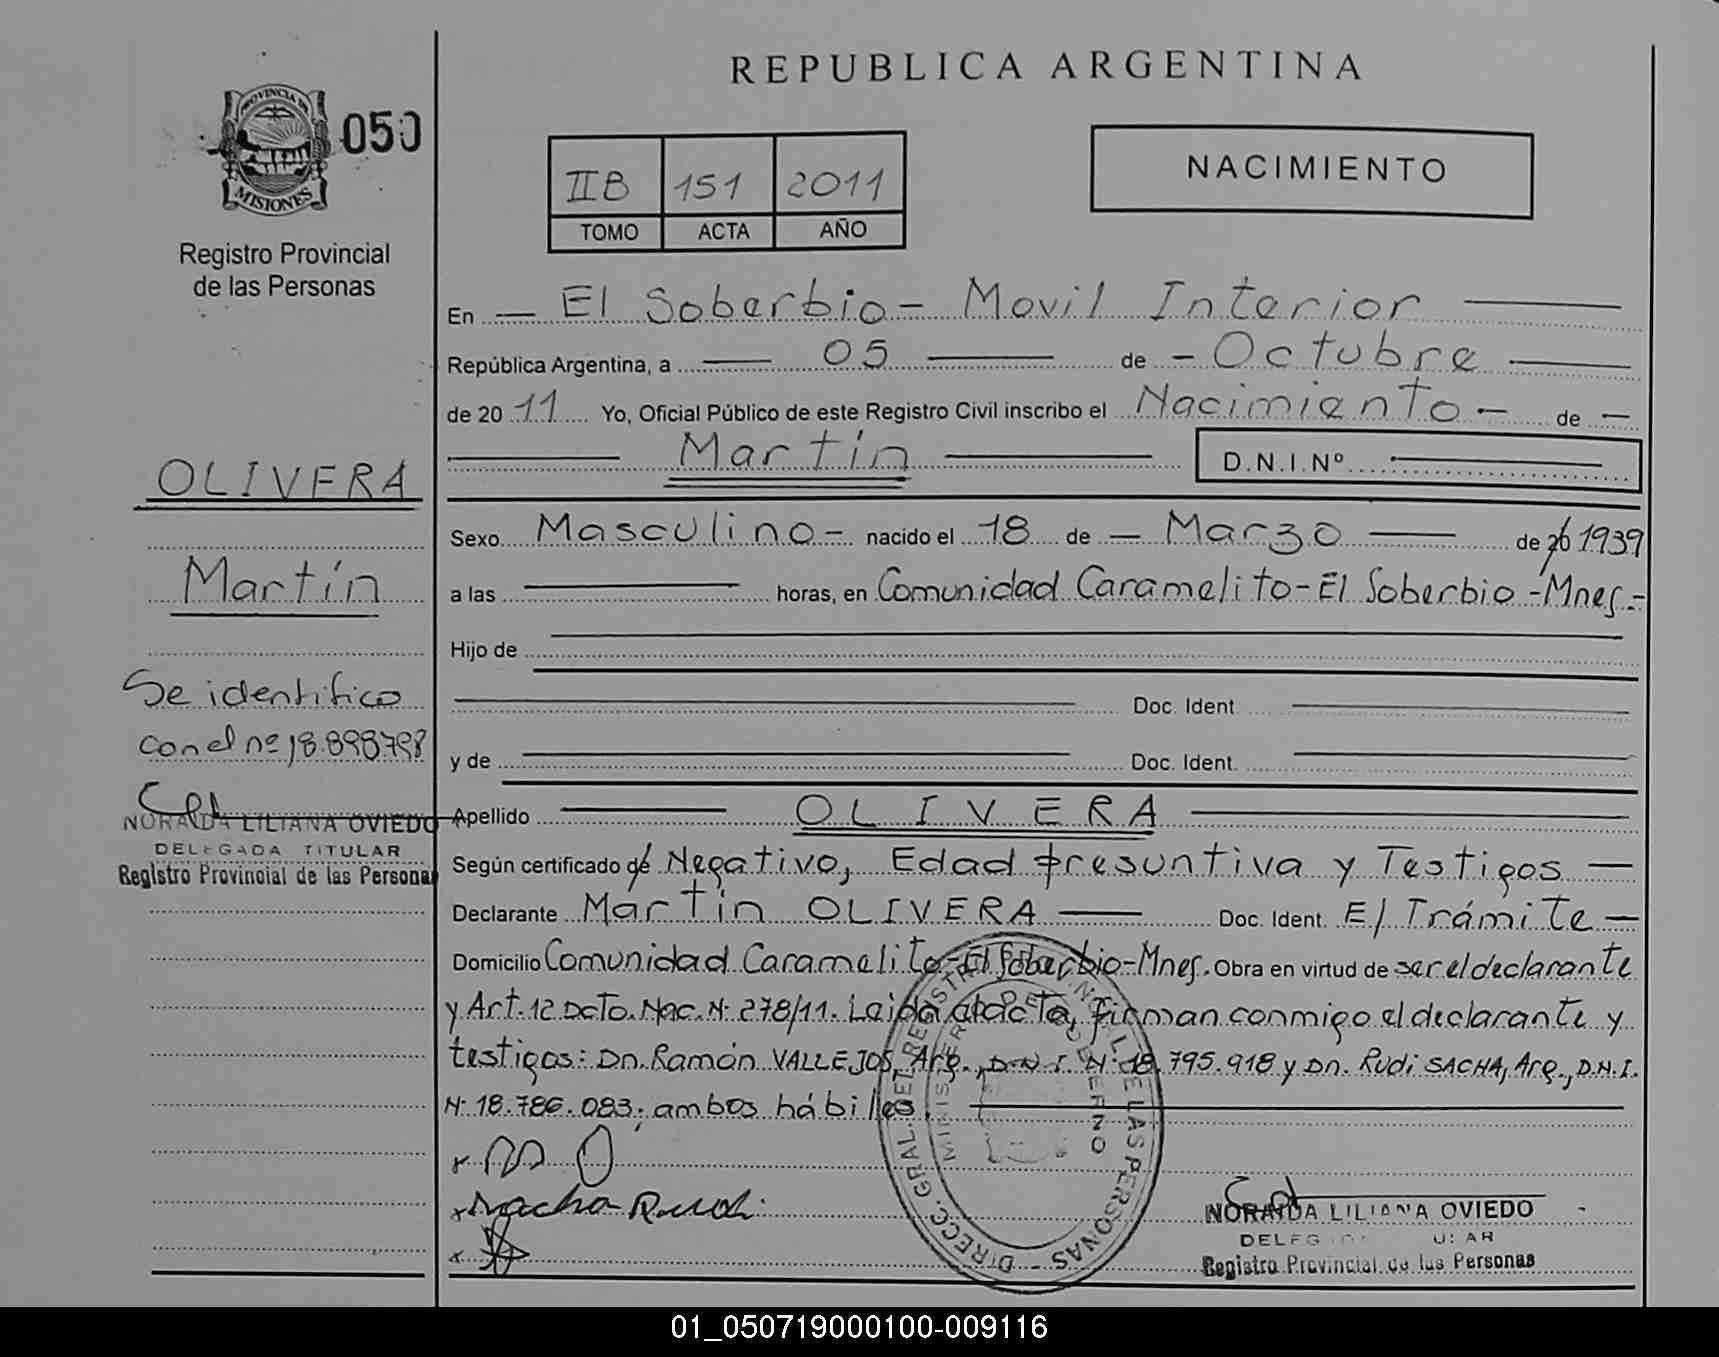 REPUBLICA ARGENTINA
PROVINCIA DE
MISIONES
050
Registro Provincial
de las Personas
IIB 151 2011
TOMO ACTA AÑO
NACIMIENTO
En El Soberbio - Movil Interior
República Argentina, a 05 de - Octubre
de 2011 Yo, Oficial Público de este Registro Civil inscribo el Nacimiento - de -
Martín D.N.I.Nº
Sexo Masculino - nacido el 18 de - Marzo de 20 1939
a las horas, en Comunidad Caramelito - El Soberbio - Mnes.-
Hijo de
Doc. Ident.
y de Doc. Ident.
Apellido OLIVERA
Según certificado de Negativo, Edad presuntiva y Testigos
Declarante Martín OLIVERA Doc. Ident. E/Trámite
Domicilio Comunidad Caramelito - El Soberbio - Mnes. Obra en virtud de ser el declarante
y Art. 12 Dcto. Nac. Nº 278/11. Leida el acta, firman conmigo el declarante y
testigos: Dn. Ramón VALLEJOS, Arg., D.N.I. Nº 18.795.918 y Dn. Rudi SACHA, Arg., D.N.I.
Nº 18.786.083; ambos hábiles.
x
x Sacha Rudi.
x
NORAIDA LILIANA OVIEDO
Registro Provincial de las Personas
DIRECC. GRAL. DEL REGISTRO PROVINCIAL DE LAS PERSONAS
MINISTERIO DE GOBIERNO
OLIVERA
Martín
Se identifico
con el nº 18.898798
NORAIDA LILIANA OVIEDO
DELEGADA TITULAR
Registro Provincial de las Personas
01_050719000100-009116